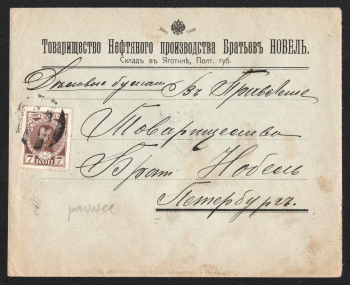 Товарищество Нефтяного производства Братьевъ НОБЕЛЬ.
Складъ въ Яготинѣ, Полт. губ.
Деловые бумаги Въ Правленіе
Товарищества
Брат Нобель
Петербургъ.
7 КОП 7